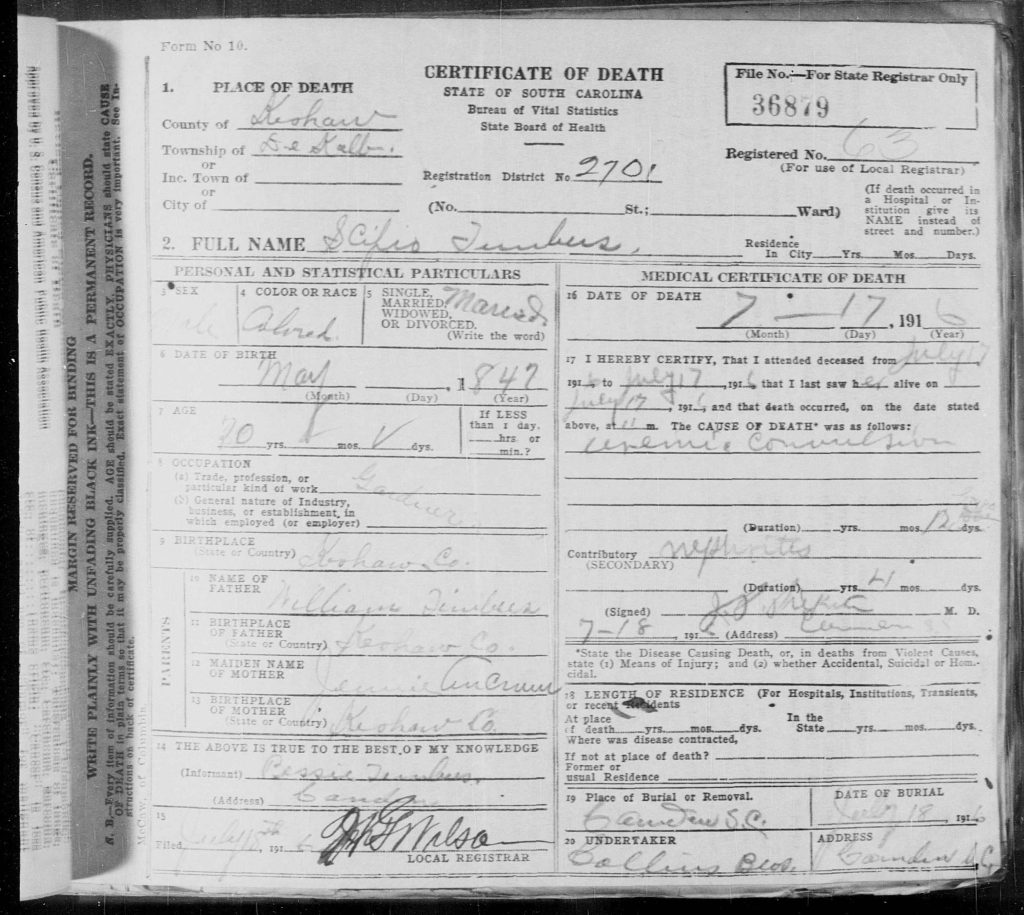 Form No 10.
CERTIFICATE OF DEATH
STATE OF SOUTH CAROLINA
Bureau of Vital Statistics
State Board of Health
File No.—For State Registrar Only
36879
1. PLACE OF DEATH
County of Keshaw
Township of De Kalb.
or
Inc. Town of
or
City of
Registration District No. 2701
Registered No. 63
(For use of Local Registrar)
(No. St.; Ward)
(If death occurred in
a Hospital or In-
stitution give its
NAME instead of
street and number.)
2. FULL NAME Scipio Timbers,
Residence
In City Yrs. Mos. Days.
PERSONAL AND STATISTICAL PARTICULARS
3 SEX
4 COLOR OR RACE
Colored.
5 SINGLE,
MARRIED,
WIDOWED,
OR DIVORCED.
(Write the word)
Maried
6 DATE OF BIRTH
May , 1847
(Month) (Day) (Year)
7 AGE
yrs. mos. dys.
If LESS
than 1 day.
hrs. or
min.?
8 OCCUPATION
(a) Trade, profession, or
particular kind of work Gardner
(b) General nature of Industry,
business, or establishment, in
which employed (or employer)
9 BIRTHPLACE
(State or Country) Keshaw Co.
PARENTS
10 NAME OF
FATHER William Timbers
11 BIRTHPLACE
OF FATHER
(State or Country) Keshaw Co.
12 MAIDEN NAME
OF MOTHER Jennie AnCrum
13 BIRTHPLACE
OF MOTHER
(State or Country) Keshaw Co.
14 THE ABOVE IS TRUE TO THE BEST OF MY KNOWLEDGE
(Informant) Bessie Timbers.
(Address) Camden
15
Filed 191
LOCAL REGISTRAR
MEDICAL CERTIFICATE OF DEATH
16 DATE OF DEATH
7 — 17 , 1916
(Month) (Day) (Year)
17 I HEREBY CERTIFY, That I attended deceased from July 17
1916 to July 17, 1916 that I last saw her alive on
July 17, 191 , and that death occurred, on the date stated
above, at 11 m. The CAUSE OF DEATH* was as follows:
uremic Convulsion
(Duration) yrs. mos. 12 dys.
Contributory nephrites
(SECONDARY)
(Duration) yrs. 4 mos. dys.
(Signed) M. D.
7-18, 191 (Address) Camden
*State the Disease Causing Death, or, in deaths from Violent Causes,
state (1) Means of Injury; and (2) whether Accidental, Suicidal or Hom-
icidal.
18 LENGTH OF RESIDENCE (For Hospitals, Institutions, Transients,
or recent Residents
At place
of death yrs. mos. dys.
In the
State yrs. mos. dys.
Where was disease contracted,
If not at place of death?
Former or
usual Residence
19 Place of Burial or Removal.
Camden S.C.
DATE OF BURIAL
July 18, 1916
20 UNDERTAKER
Collins Bros.
ADDRESS
Camden S.C.
MARGIN RESERVED FOR BINDING
WRITE PLAINLY WITH UNFADING BLACK INK—THIS IS A PERMANENT RECORD.
N. B.—Every item of information should be carefully supplied. AGE should be stated EXACTLY. PHYSICIANS should state CAUSE
OF DEATH in plain terms so that it may be properly classified. Exact statement of OCCUPATION is very important. See In-
structions on back of certificate.
McCaw, of Columbia